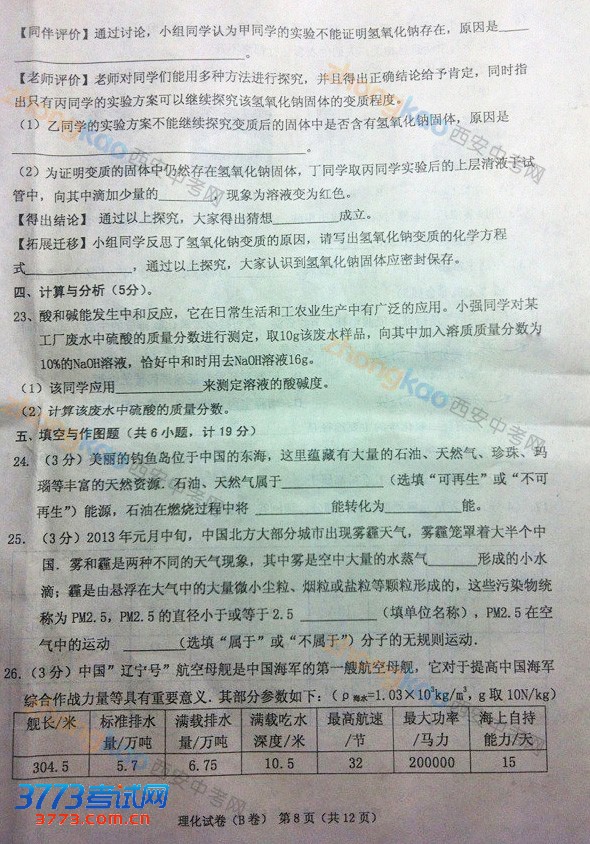 【同伴评价】通过讨论，小组同学认为甲同学的实验不能证明氢氧化钠存在，原因是____
____________________。
【老师评价】老师对同学们能用多种方法进行探究，并且得出正确结论给予肯定，同时指
出只有丙同学的实验方案可以继续探究该氢氧化钠固体的变质程度。
（1）乙同学的实验方案不能继续探究变质后的固体中是否含有氢氧化钠固体，原因是
____________________。
（2）为证明变质的固体中仍然存在氢氧化钠固体，丁同学取丙同学实验后的上层清液于试
管中，向其中滴加少量的________，现象为溶液变为红色。
【得出结论】 通过以上探究，大家得出猜想__________成立。
【拓展迁移】小组同学反思了氢氧化钠变质的原因，请写出氢氧化钠变质的化学方程
式________________，通过以上探究，大家认识到氢氧化钠固体应密封保存。
四、计算与分析（5分）。
23、酸和碱能发生中和反应，它在日常生活和工农业生产中有广泛的应用。小强同学对某
工厂废水中硫酸的质量分数进行测定，取10g该废水样品，向其中加入溶质质量分数为
10%的NaOH溶液，恰好中和时用去NaOH溶液16g。
（1）该同学应用____________来测定溶液的酸碱度。
（2）计算该废水中硫酸的质量分数。
五、填空与作图题（共6小题，计19分）
24.（3分）美丽的钓鱼岛位于中国的东海，这里蕴藏有大量的石油、天然气、珍珠、玛
瑙等丰富的天然资源．石油、天然气属于______________（选填“可再生”或“不可
再生”）能源，石油在燃烧过程中将 __________能转化为__________能。
25.（3分）2013年元月中旬，中国北方大部分城市出现雾霾天气，雾霾笼罩着大半个中
国．雾和霾是两种不同的天气现象，其中雾是空中大量的水蒸气_______形成的小水
滴；霾是由悬浮在大气中的大量微小尘粒、烟粒或盐粒等颗粒形成的，这些污染物统
称为PM2.5，PM2.5的直径小于或等于2.5 __________（填单位名称），PM2.5在空
气中的运动 ________（选填“属于”或“不属于”）分子的无规则运动．
26.（3分）中国”辽宁号”航空母舰是中国海军的第一艘航空母舰，它对于提高中国海军
综合作战力量等具有重要意义．其部分参数如下：（ρ海水=1.03×10³kg/m³，g取10N/kg）
舰长/米 标准排水量/万吨 满载排水量/万吨 满载吃水深度/米 最高航速/节 最大功率/马力 海上自持能力/天
304.5 5.7 6.75 10.5 32 200000 15
理化试卷（B卷） 第8页（共12页）
3773考试网
3773.com.cn
zhongkao西安中考网
zhongkao西安中考网
zhongkao西安中考网
zhongkao西安中考网
zhongkao西安中考网